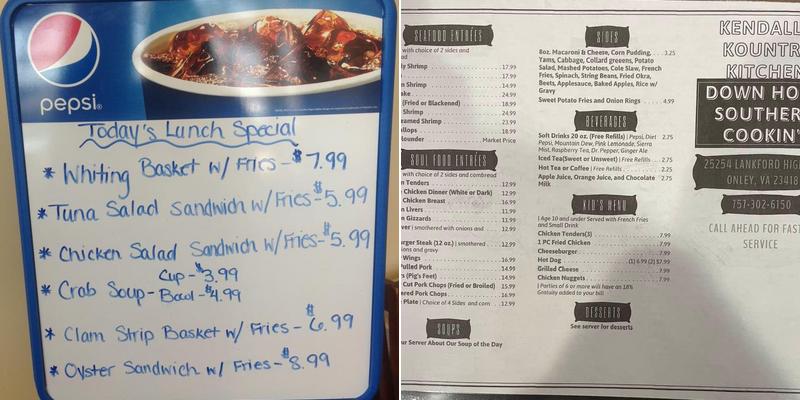 pepsi
Today's Lunch Special
* Whiting Basket w/ Fries - $7.99
* Tuna Salad Sandwich w/Fries - $5.99
* Chicken Salad Sandwich w/Fries - $5.99
Cup - $3.99
* Crab Soup - Bowl - $4.99
* Clam Strip Basket w/ Fries - $6.99
* Oyster Sandwich w/ Fries - $8.99
SEAFOOD ENTRÉES
with choice of 2 sides and
Shrimp 17.99
17.99
Shrimp 14.99
24.99
(Fried or Blackened) 18.99
Shrimp 24.99
Shrimp 23.99
18.99
Market Price
SOUL FOOD ENTRÉES
with choice of 2 sides and cornbread
Tenders 12.99
Chicken Dinner (White or Dark) 12.99
Chicken Breast 16.99
Livers 11.99
Gizzards 11.99
smothered with onions and 12.99
Steak (12 oz.) | smothered 12.99
onions and gravy
Wings 16.99
Pulled Pork 14.99
(Pig's Feet) 14.99
Cut Pork Chops (Fried or Broiled) 15.99
Pork Chops 16.99
Plate | Choice of 4 Sides and corn 12.99
SOUPS
Server About Our Soup of the Day
SIDES
8oz. Macaroni & Cheese, Corn Pudding, 3.25
Yams, Cabbage, Collard greeens, Potato
Salad, Mashed Potatoes, Cole Slaw, French
Fries, Spinach, String Beans, Fried Okra,
Beets, Applesauce, Baked Apples, Rice w/
Gravy
Sweet Potato Fries and Onion Rings 4.99
BEVERAGES
Soft Drinks 20 oz. (Free Refills) | Pepsi, Diet 2.75
Pepsi, Mountain Dew, Pink Lemonade, Sierra
Mist, Raspberry Tea, Dr. Pepper, Ginger Ale
Iced Tea(Sweet or Unsweet) | Free Refills 2.75
Hot Tea or Coffee | Free Refills 2.25
Apple Juice, Orange Juice, and Chocolate 2.75
Milk
KID'S MENU
| Age 10 and under Served with French Fries
and Small Drink
Chicken Tenders(3) 7.99
1 PC Fried Chicken 7.99
Cheeseburger 7.99
Hot Dog (1) 6.99 (2) $7.99
Grilled Cheese 7.99
Chicken Nuggets 7.99
| Parties of 6 or more will have an 18%
Gratuity added to your bill
DESSERTS
See server for desserts
KENDALL
KOUNTR
KITCHEN
DOWN HO
SOUTHER
COOKIN'
25254 LANKFORD HIG
ONLEY, VA 23418
757-302-6150
CALL AHEAD FOR FAST
SERVICE